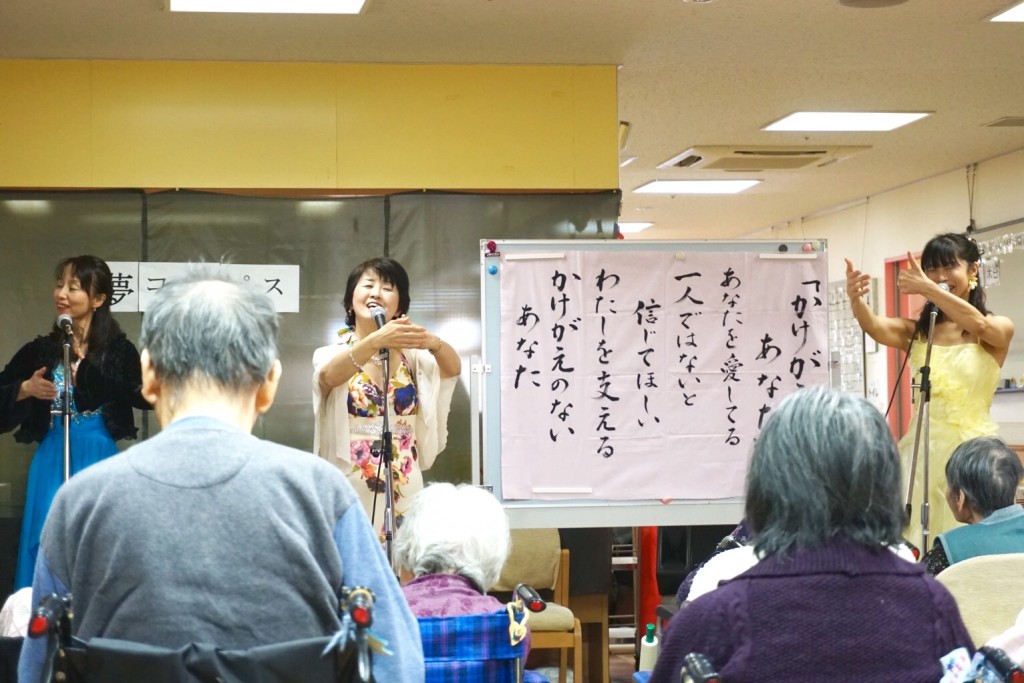 夢コ パス
「かけが
あなた
あなたを愛してる
一人ではないと
信じてほしい
わたしを支える
かけがえのない
あなた